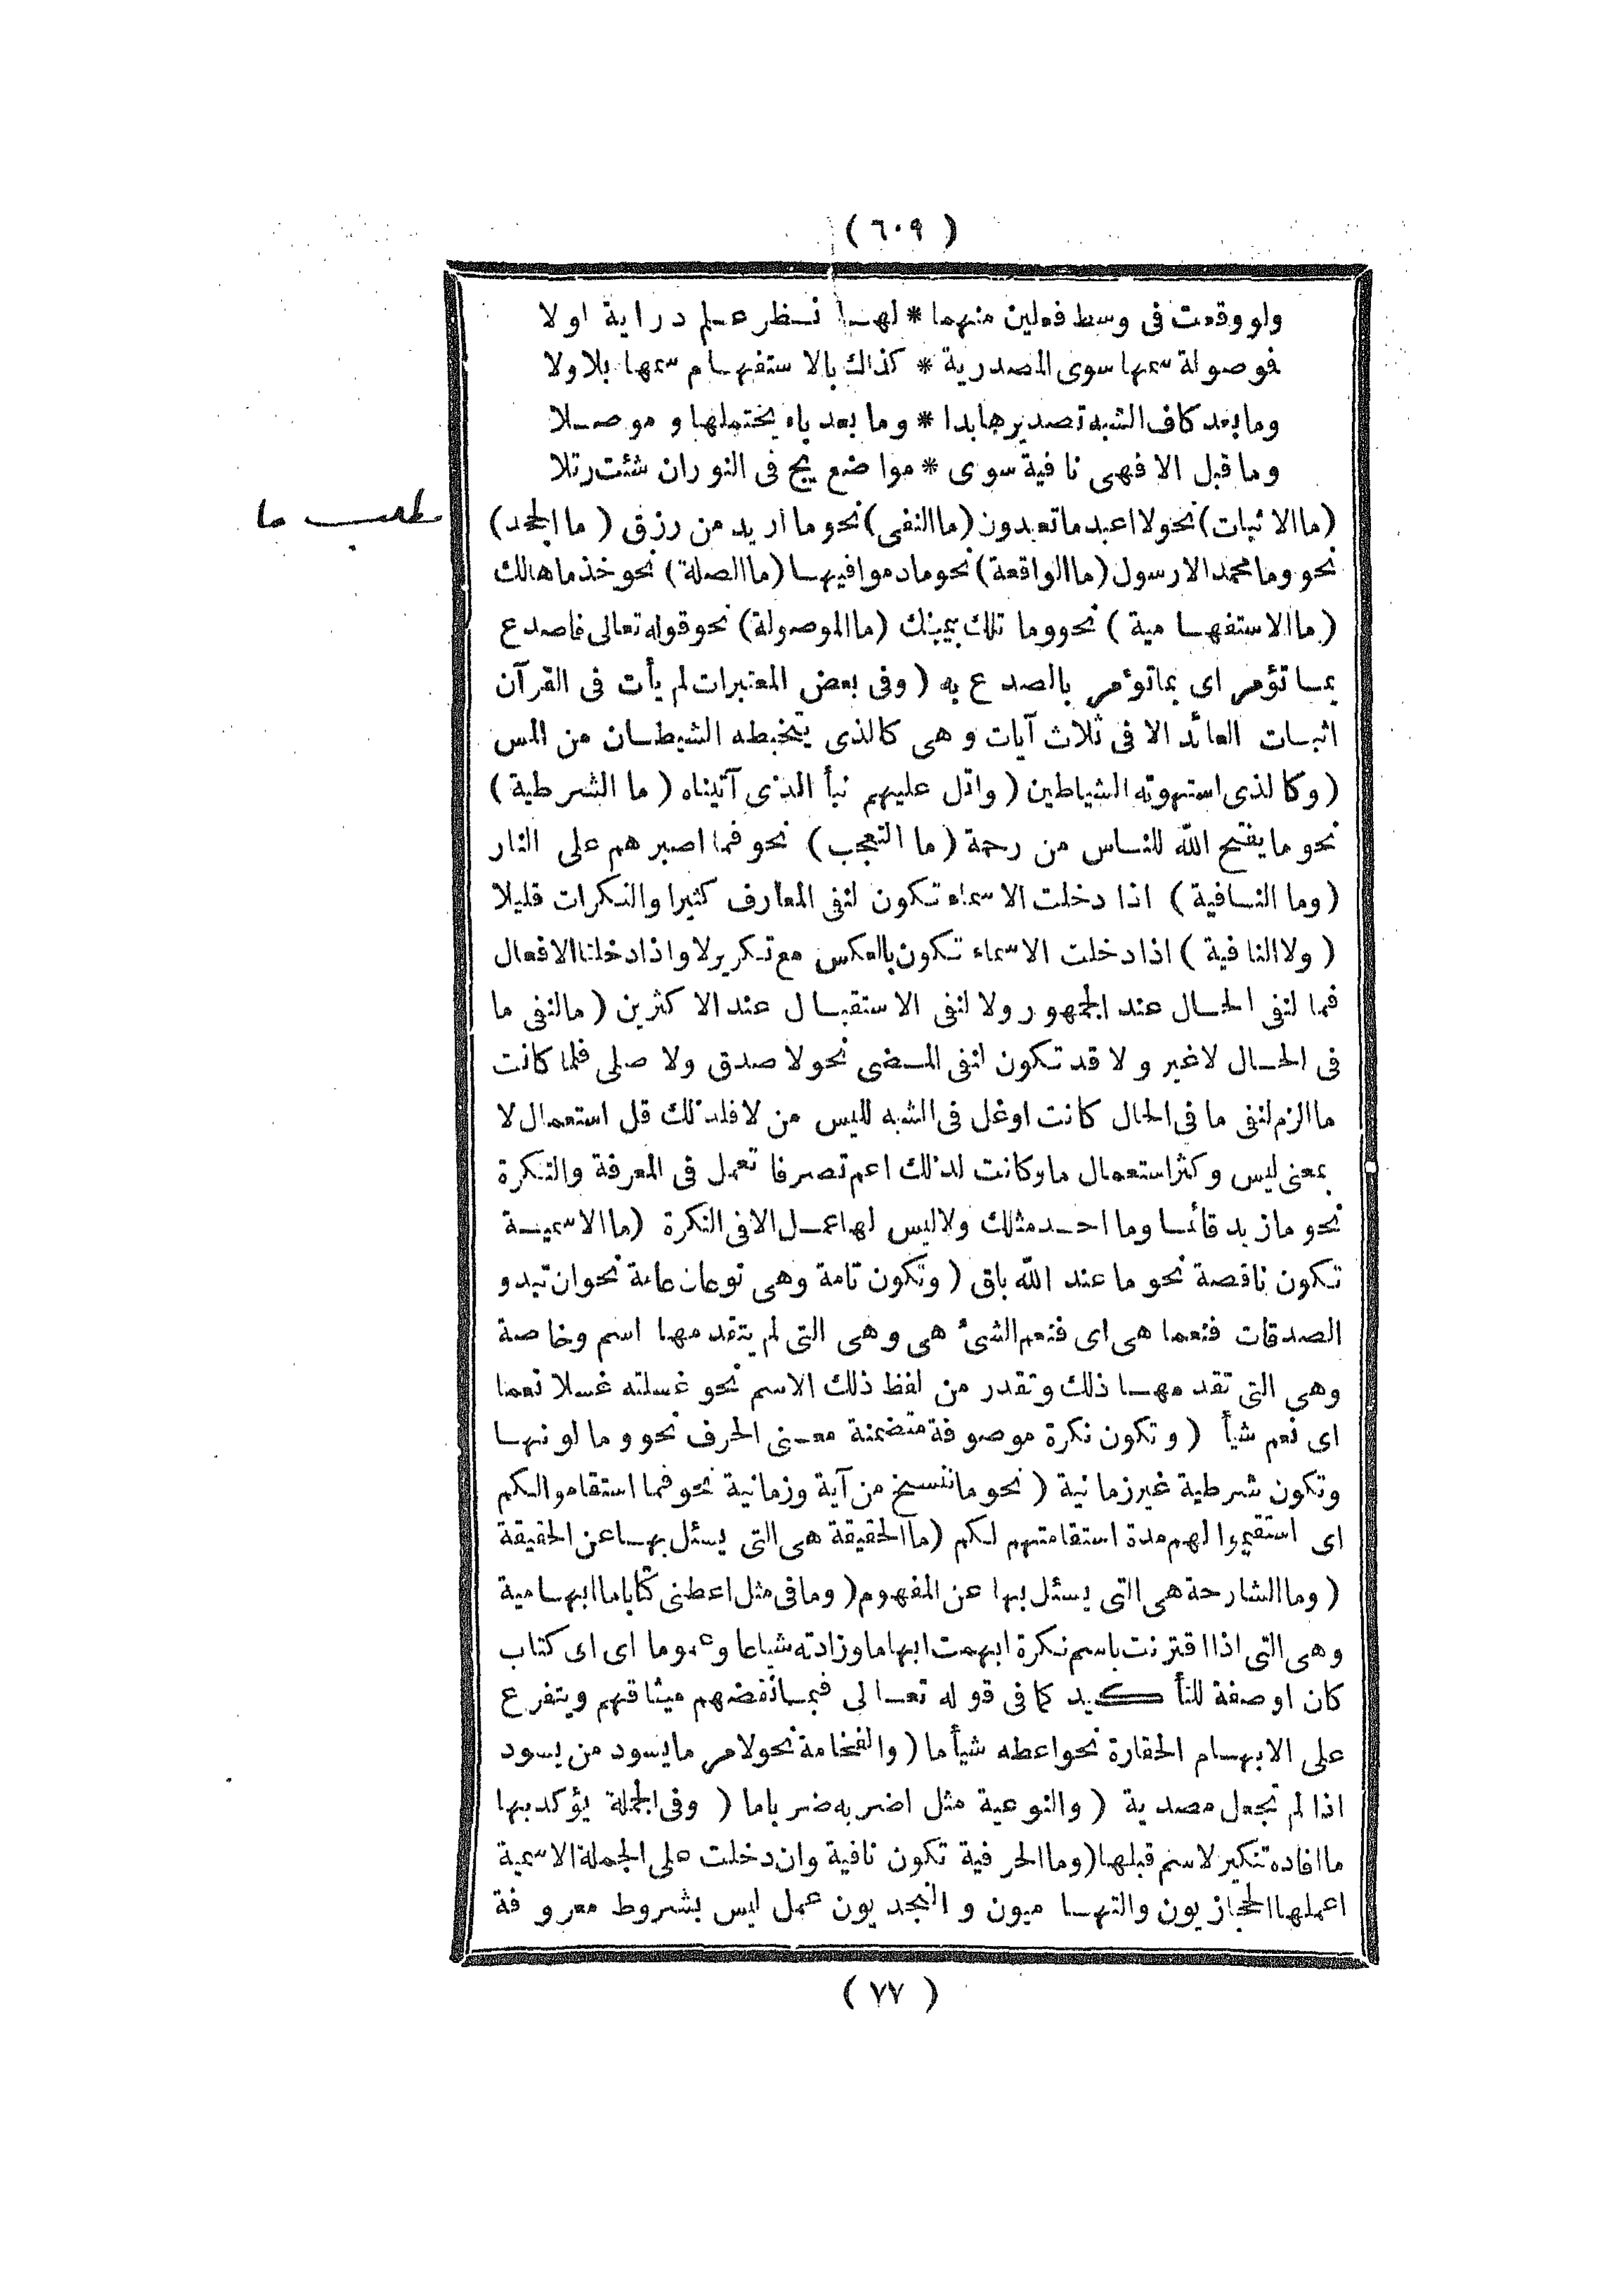 ( ٦٠٩ )
ولو وقعت فى وسط فعلين منهما * لهـا نـظر عـلم دراية او لا
فوصولة سمها سوى المصدرية * كذاك بالاستفهـام سمها بلا ولا
وما بعد كاف الشبه تصديرها بدا * وما بعد باء يحتملها و موصـلا
وما قبل الا فهى نافية سوى * مواضع يج فى النور ان شئت رتلا
مطلب ما
(ما الاثبات) نحو لا اعبد ما تعبدون (ما النفى) نحو ما اريد من رزق (ما الجحد)
نحو وما محمد الا رسول (ما الواقعة) نحو ما دموا فيهـا (ما الصلة) نحو خذ ما هالك
(ما الاستفهـامية) نحو وما تلك بيمينك (ما الموصولة) نحو قوله تعالى فاصدع
بمـا تؤمر اى بما تؤمر بالصدع به (وفى بعض المعتبرات لم يأت فى القرآن
اثبـات العائد الا فى ثلاث آيات و هى كالذى يتخبطه الشيطـان من المس
(وكالذى استهوته الشياطين (واتل عليهم نبأ الذى آتيناه (ما الشرطية)
نحو ما يفتح الله للنـاس من رحمة (ما التعجب) نحو فما اصبرهم على النار
(وما النـافية) اذا دخلت الاسماء تكون لنفى المعارف كثيرا والنكرات قليلا
(ولا النافية) اذا دخلت الاسماء تكون بالعكس مع تكرير لا واذا دخلتا الافعال
فما لنفى الحـال عند الجمهور ولا لنفى الاستقبـال عند الاكثرين (ما لنفى ما
فى الحـال لا غير و لا قد تكون لنفى المـضى نحو لا صدق ولا صلى فلما كانت
ما الزم لنفى ما فى الحال كانت اوغل فى الشبه لليس من لا فلذلك قل استعمال لا
بمعنى ليس و كثر استعمال ما وكانت لذلك اعم تصرفا تعمل فى المعرفة والنكرة
نحو ما زيد قائمـا وما احـد مثلك ولا ليس لها عمـل الا فى النكرة (ما الاسميـة
تكون ناقصة نحو ما عند الله باق (وتكون تامة وهى نوعان عامة نحو ان تبدو
الصدقات فنعما هى اى فنعم الشئ هى و هى التى لم يتقدمها اسم وخاصة
وهى التى تقدمهـا ذلك وتقدر من لفظ ذلك الاسم نحو غسلته غسلا نعما
اى نعم شيأ (و تكون نكرة موصوفة متضمنة معـنى الحرف نحو وما لونهـا
وتكون شرطية غير زمانية (نحو ما ننسخ من آية وزمانية نحو فما استقاموا لكم
اى استقيموا لهم مدة استقامتهم لكم (ما الحقيقة هى التى يسئل بهـا عن الحقيقة
(وما الشارحة هى التى يسئل بها عن المفهوم (وما فى مثل اعطنى كتابا ما ابهامية
وهى التى اذا اقترنت باسم نكرة ابهمت ابهاما وزادته شياعا وعموما اى اى كتاب
كان او صفة للتأكيد كما فى قوله تعـالى فبمـا نقضهم ميثاقهم ويتفرع
على الابهـام الحقارة نحو اعطه شيأ ما (والفخامة نحو لامر ما يسود من يسود
اذا لم تجعل مصدية (والنوعية مثل اضربه ضربا ما (وفى الجملة يؤكد بها
ما افاده تنكير لاسم قبلها (وما الحرفية تكون نافية وان دخلت على الجملة الاسمية
اعملها الحجازيون والتهـاميون و النجديون عمل ليس بشروط معروفة
( ٧٧ )